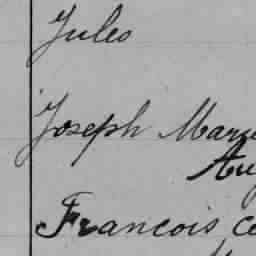 Jules
Joseph Marie
Au
Francois Ce